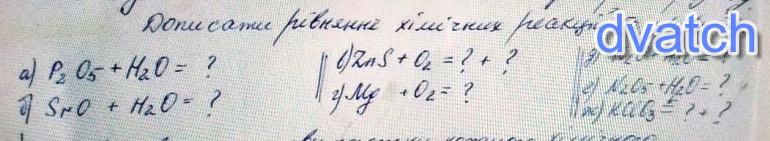 Дописати рівняння хімічних реакцій
dvatch
а) P₂O₅ + H₂O = ?
б) SrO + H₂O = ?
в) ZnS + O₂ = ? + ?
г) Mg + O₂ = ?
е) N₂O₅ + H₂O = ?
ж) KClO₃ = ? + ?